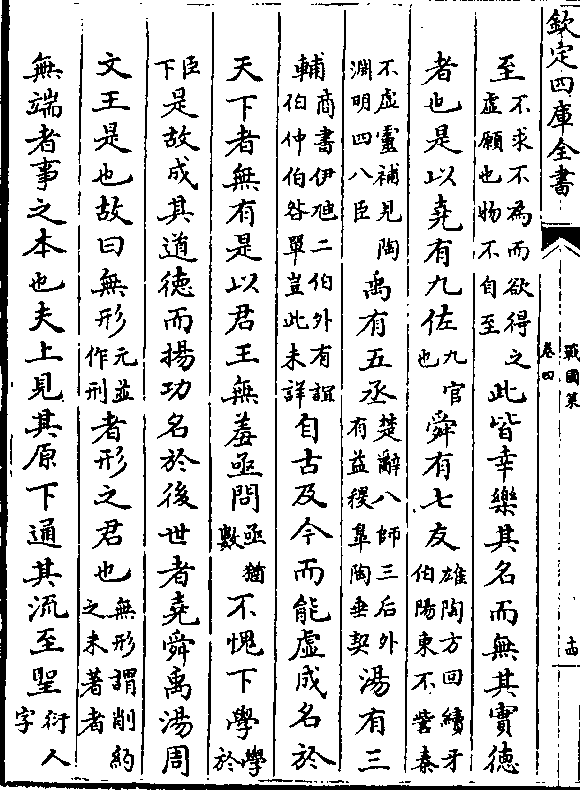 欽定四庫全書
戰國策
卷四
十四
至不求不為而欲得之虛願也物不自至此皆幸樂其名而無其實德
者也是以堯有九佐九官也舜有七友雄陶方回續牙伯陽東不訾秦
不虛靈補見陶淵明四八臣禹有五丞楚辭八師三后外有益稷皐陶垂契湯有三
輔商書伊虺二伯外有誼伯仲伯咎單豈此未詳自古及今而能虛成名於
天下者無有是以君王無羞亟問亟猶數不愧下學學於
臣下是故成其道德而揚功名於後世者堯舜禹湯周
文王是也故曰無形元並作刑者形之君也無形謂削約之未著者
無端者事之本也夫上見其原下通其流至聖衍人字